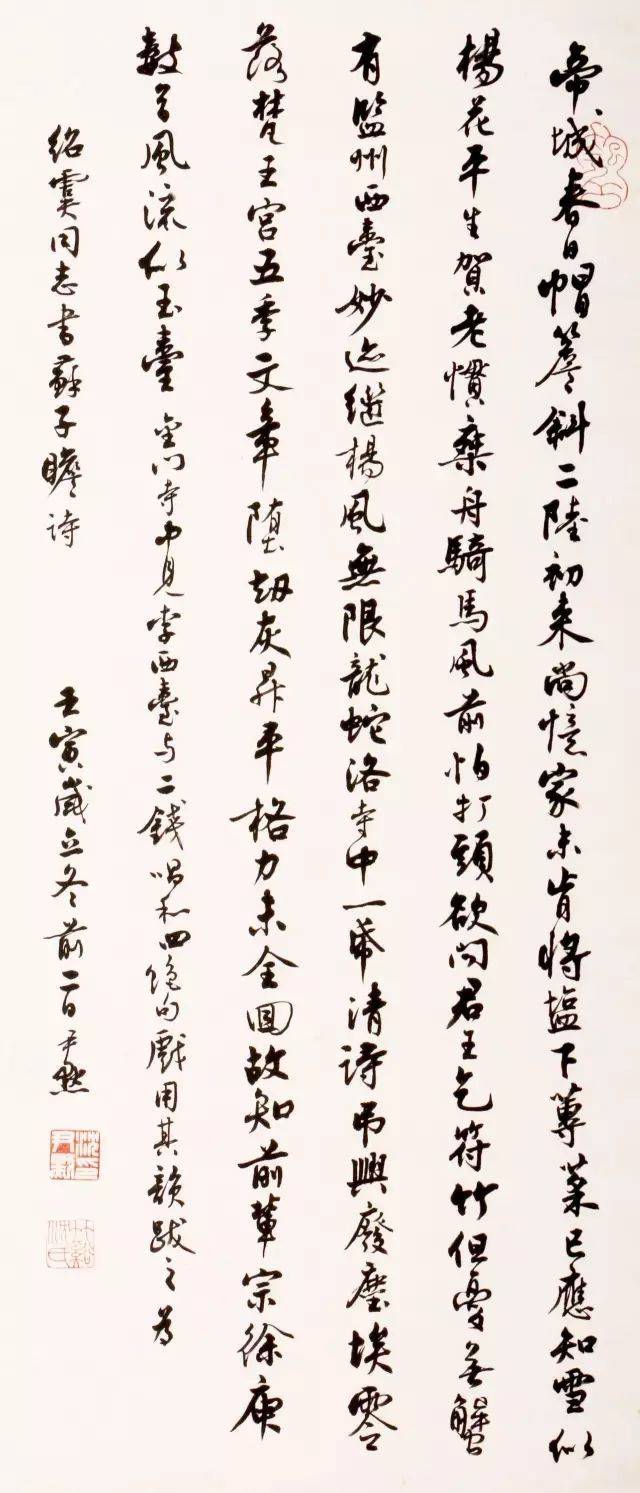 帝城春日帽簷斜二陸初來尚憶家未肯將塩下蓴菜已應知雪似
楊花平生賀老慣乘舟騎馬風前怕打頭欲問君王乞符竹但憂無蟹
有監州西臺妙迹繼楊風無限龍蛇洛寺中一帋清詩弔興廢塵埃零
落梵王宮五季文章墮劫灰昇平格力未全回故知前輩宗徐庾
數首風流似玉臺 金門寺中見李西臺与二錢唱和四絕句戲用其韻跋之 為
紹虞同志書蘇子瞻詩 壬寅歲立冬前二日 尹默